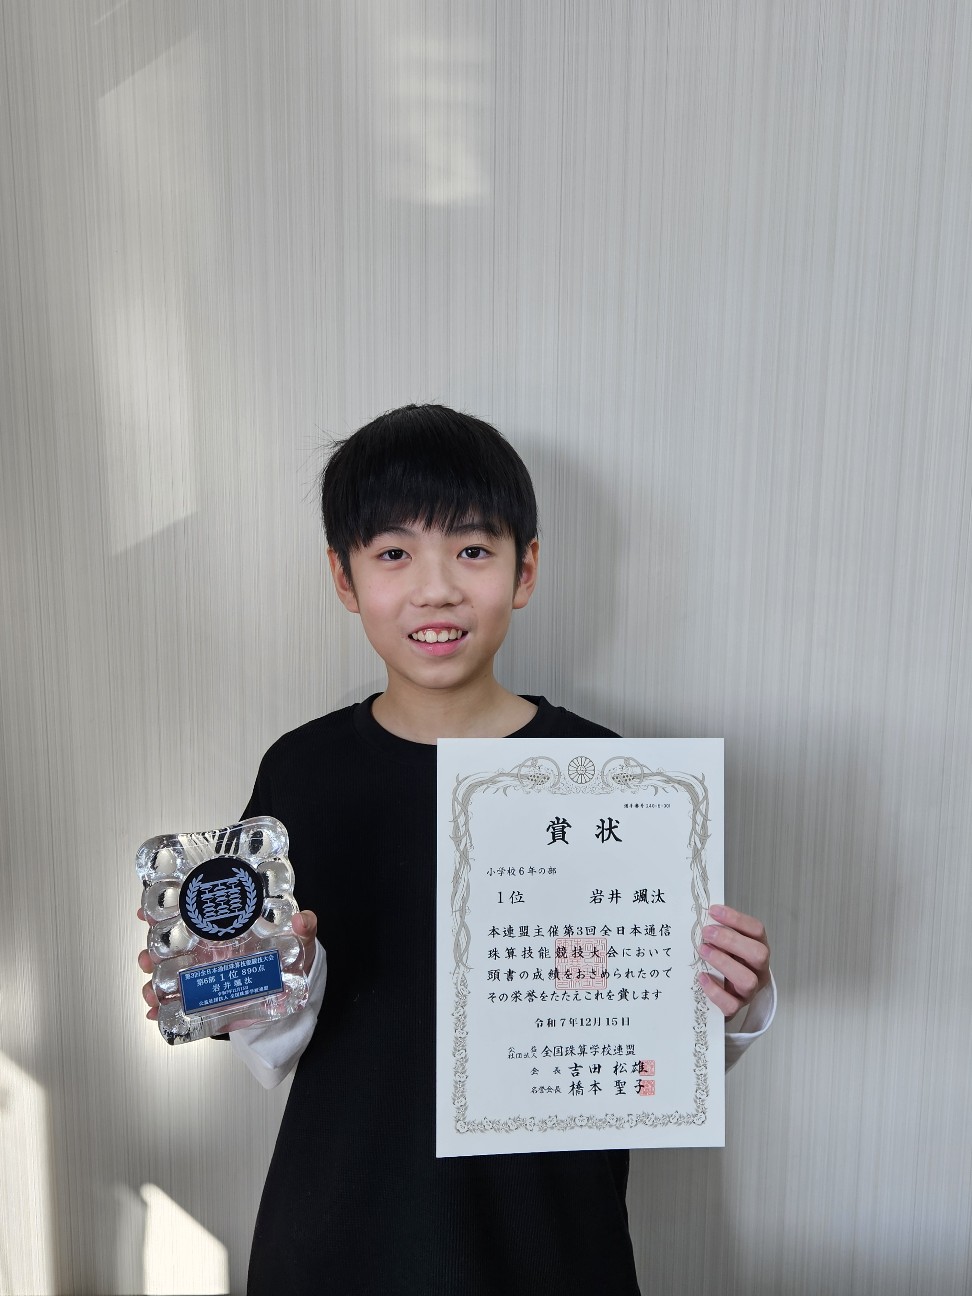 第3回全日本通信珠算技能競技大会
第6部 1位 890点
岩井 颯汰
令和7年12月15日
公益社団法人 全国珠算学校連盟
賞状
小学校6年の部
1位 岩井 颯汰
本連盟主催第3回全日本通信
珠算技能競技大会において
頭書の成績をおさめられたので
その栄誉をたたえこれを賞します
令和7年12月15日
公益社団法人 全国珠算学校連盟
会長 吉田 松雄
名誉会長 橋本 聖子